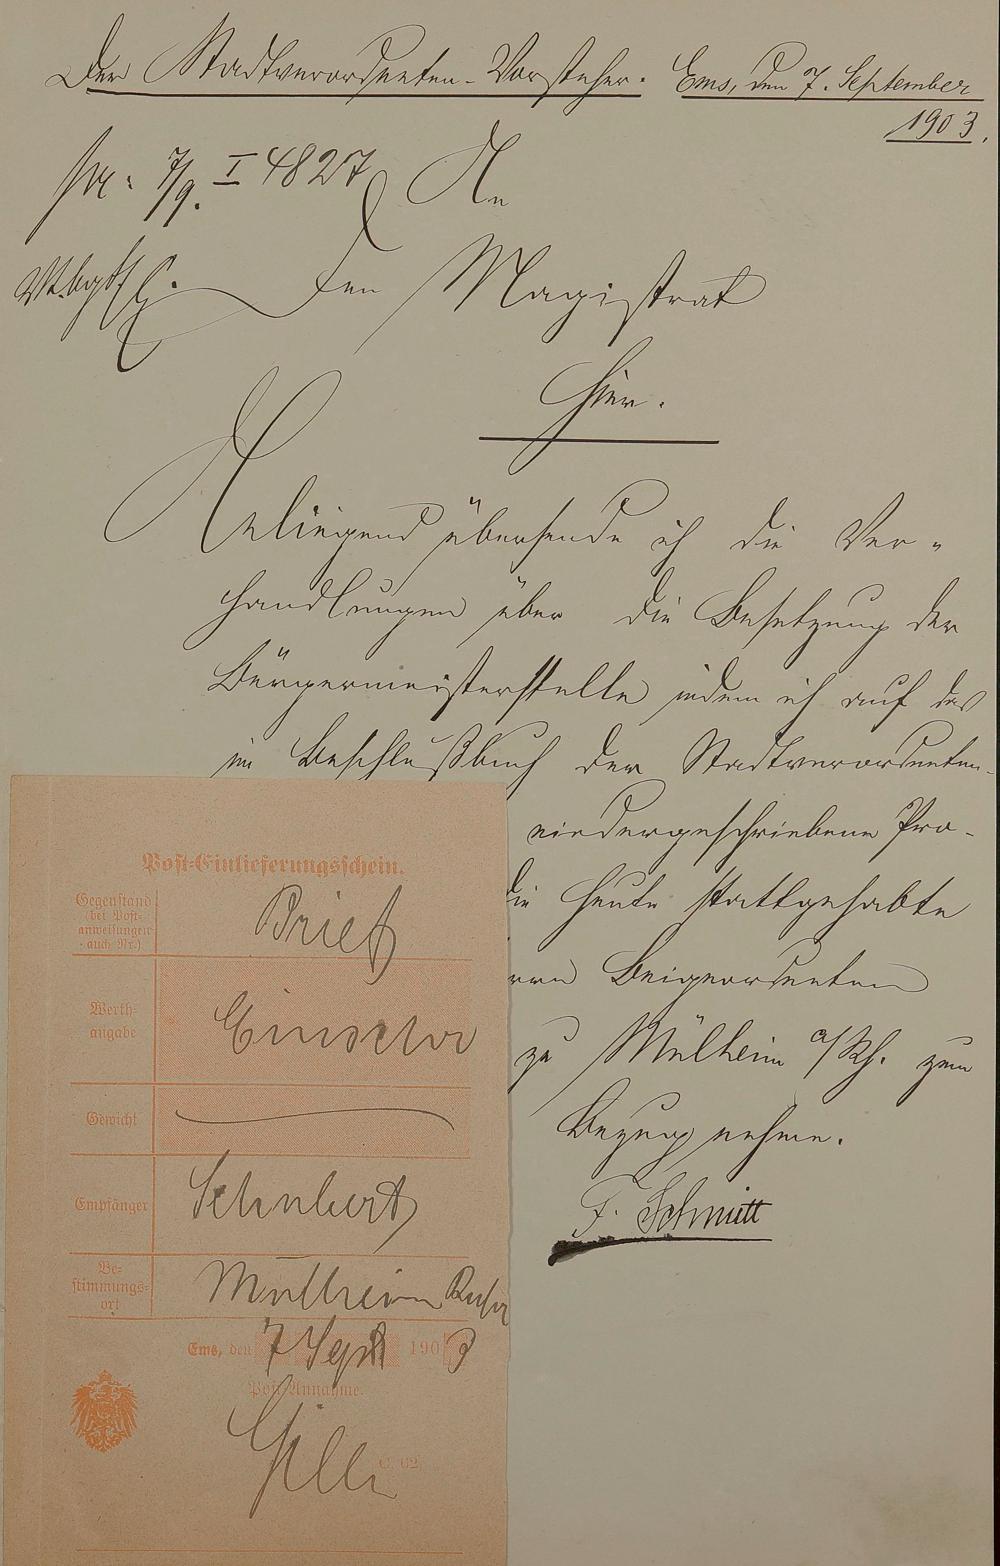 Der Stadtverordneten-Vorsteher. Ems, den 7. September
1903.
pr. 7/9. I 4827 An
den Magistrat
Hier.
Anliegend übersende ich die Ver-
handlungen über die Besetzung der
Bürgermeisterstelle indem ich auf das
im Beschlußbuch der Stadtverordneten-
niedergeschriebene Pro-
die heute stattgehabte
Beigeordneten
zu Mülheim a/Rh. zum
Bezug nehme.
F. Schmitt
Post-Einlieferungsschein.
Gegenstand
(bei Post-
anweisungen
auch Nr.)
Brief
Werth-
angabe
Einschr
Gewicht
Empfänger
Schubert
Be-
stimmungs-
ort
Mülheim Ruhr
Ems, den 7 Sept 1903
Post-Annahme.
C. 62